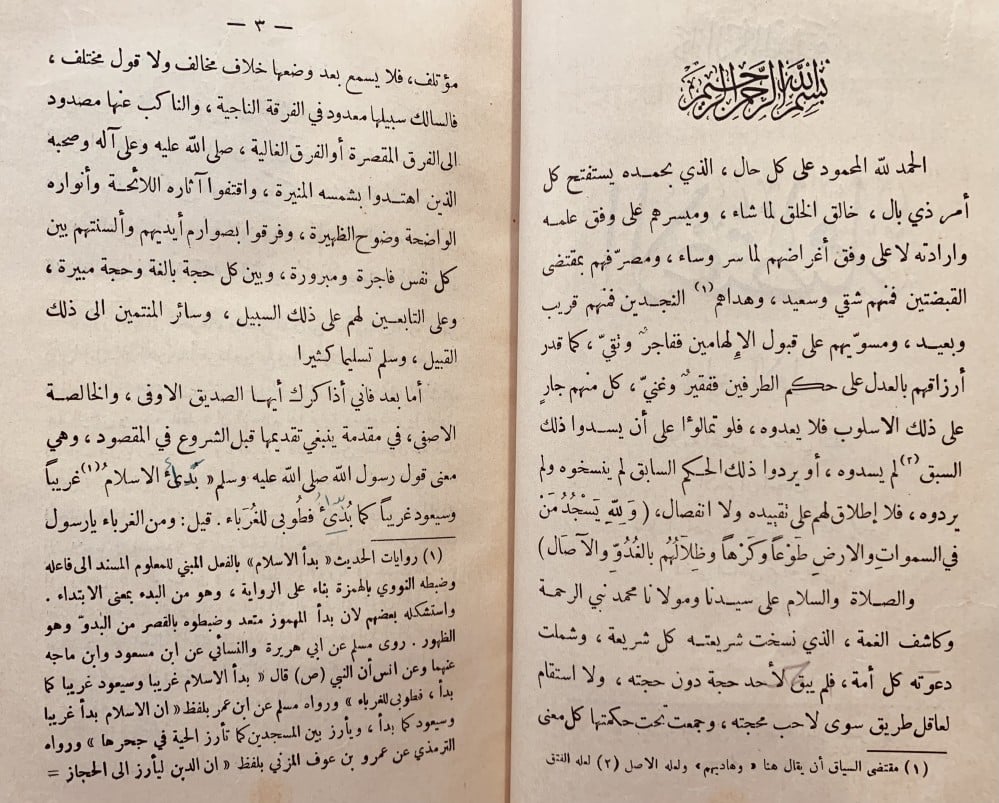 بسم الله الرحمن الرحيم
الحمد لله المحمود على كل حال ، الذي بحمده يستفتح كل
أمر ذي بال ، خالق الخلق لما شاء ، وميسرهم على وفق علمه
وارادته لا على وفق أغراضهم لما سر وساء ، ومصرّفهم بمقتضى
القبضتين فمنهم شقي وسعيد ، وهداهم (١) النجدين فمنهم قريب
وبعيد ، ومسوّيهم على قبول الإلهامين ففاجرٌ وتقيّ ، كما قدر
أرزاقهم بالعدل على حكم الطرفين ففقيرٌ وغنيّ ، كل منهم جارٍ
على ذلك الاسلوب فلا يعدوه ، فلو تمالؤا على أن يسدوا ذلك
السبق (٢) لم يسدوه ، أو يردوا ذلك الحكم السابق لم ينسخوه ولم
يردوه ، فلا إطلاق لهم على تقييده ولا انفصال ، ( وَلِلّهِ يَسْجُدُ مَنْ
في السمواتِ والارضِ طَوْعاً وكَرْهاً وظِلاَلُهُم بالغُدُوِّ والآصَالِ )
والصلاة والسلام على سيدنا ومولانا محمد نبي الرحمة
وكاشف الغمة ، الذي نسخت شريعته كل شريعة ، وشملت
دعوته كل أمة ، فلم يبق لأحد حجة دون حجته ، ولا استقام
لعاقل طريق سوى لاحب محجته ، وجمعت تحت حكمتها كل معنى
(١) مقتضى السياق أن يقال هنا « وهاديهم » ولعله الاصل (٢) لعله الفتق
— ٣ —
مؤتلف، فلا يسمع بعد وضعها خلاف مخالف ولا قول مختلف ،
فالسالك سبيلها معدود في الفرقة الناجية ، والناكب عنها مصدود
الى الفرق المقصرة أو الفرق الغالية ، صلى الله عليه وعلى آله وصحبه
الذين اهتدوا بشمسه المنيرة ، واقتفوا آثاره اللائحة وأنواره
الواضحة وضوح الظهيرة ، وفرقوا بصوارم أيديهم وألسنتهم بين
كل نفس فاجرة ومبرورة ، وبين كل حجة بالغة وحجة مبيرة ،
وعلى التابعين لهم على ذلك السبيل ، وسائر المنتمين الى ذلك
القبيل ، وسلم تسليما كثيرا
أما بعد فاني أذاكرك أيها الصديق الاوفى ، والخالصة
الاصفى، في مقدمة ينبغي تقديمها قبل الشروع في المقصود ، وهي
معنى قول رسول الله صلى الله عليه وسلم « بُدئَ الاسلامُ (١) غريباً
وسيعود غريباً كما بُدئَ فطُوبى للغُرَباء . قيل : ومن الغرباء يارسول
(١) روايات الحديث « بدأ الاسلام » بالفعل المبني للمعلوم المسند الى فاعله
وضبطه النووي بالهمزة بناء على الرواية ، وهو من البدء بمعنى الابتداء .
واستشكله بعضهم لان بدأ المهموز متعد وضبطوه بالقصر من البدوّ وهو
الظهور . روى مسلم عن ابي هريرة والنسائي عن ابن مسعود وابن ماجه
عنهما وعن انس أن النبي (ص) قال « بدأ الاسلام غريبا وسيعود غريبا كما
بدأ ، فطوبى للغرباء » ورواه مسلم عن ابن عمر بلفظ « ان الاسلام بدأ غريبا
وسيعود كما بدأ ، ويأرز بين المسجدين كما تأرز الحية في جحرها » ورواه
الترمذي عن عمرو بن عوف المزني بلفظ « ان الدين ليأرز الى الحجاز =